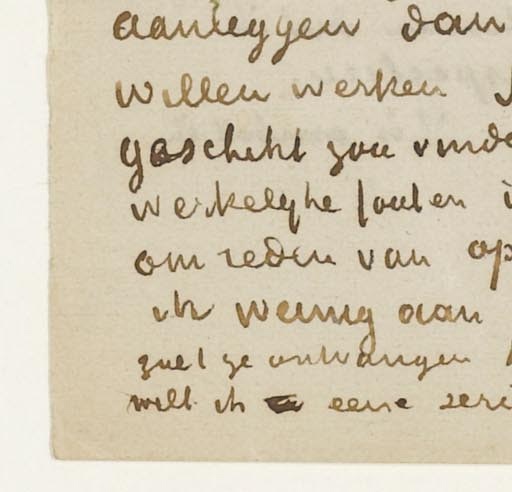 aanleggen dan
willen werken
geschikt zou vinde
werkelyke fouten
om reden van op
ik weinig aan
zult ge ontvangen
will ik eene seri